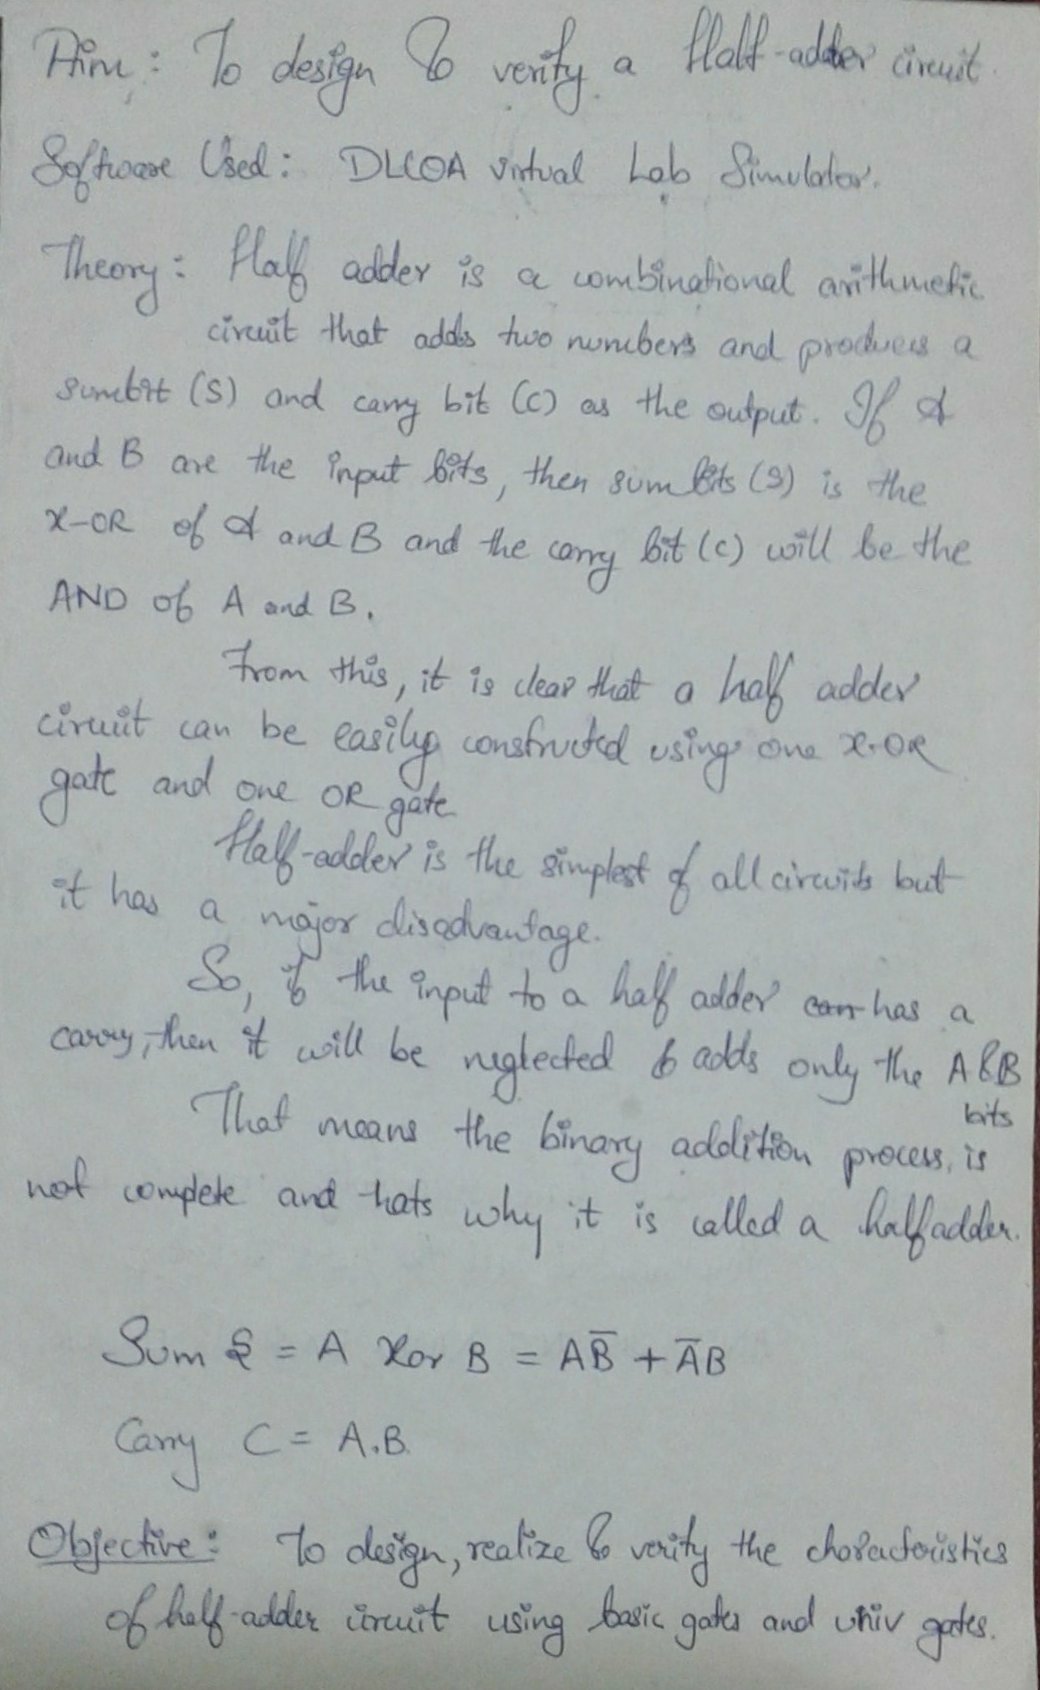 Aim: To design & verify a Half-adder circuit.
Software Used: DLCOA virtual Lab Simulator.
Theory: Half adder is a combinational arithmetic
circuit that adds two numbers and produces a
sumbit (S) and carry bit (C) as the output. If A
and B are the input bits, then sum bits (S) is the
X-OR of A and B and the carry bit (C) will be the
AND of A and B.
From this, it is clear that a half adder
circuit can be easily constructed using one X-OR
gate and one OR gate
Half-adder is the simplest of all circuits but
it has a major disadvantage.
So, if the input to a half adder has a
carry, then it will be neglected & adds only the A & B
bits
That means the binary addition process, is
not complete and thats why it is called a halfadder.
Sum S = A Xor B = AB̅ + A̅B
Carry C = A.B.
Objective: To design, realize & verify the characteristics
of half-adder circuit using basic gates and univ gates.